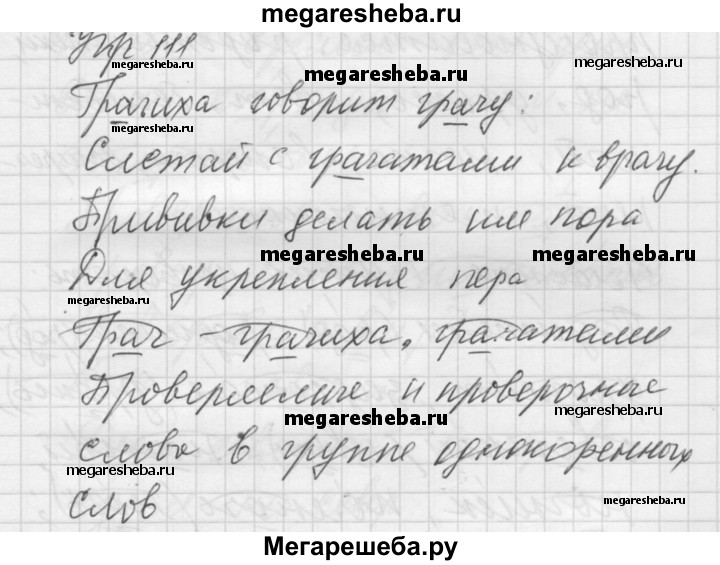 megaresheba.ru
Упр 111
megaresheba.ru
megaresheba.ru
megaresheba.ru
Грачиха говорит грачу:
megaresheba.ru
Слетай с грачатами к врачу.
Прививки делать им пора
megaresheba.ru
megaresheba.ru
Для укрепления пера
megaresheba.ru
Грач - грачиха, грачатами
Проверяемые и проверочные
megaresheba.ru
megaresheba.ru
слова в группе однокоренных
megaresheba.ru
слов
megaresheba.ru
Мегарешеба.ру